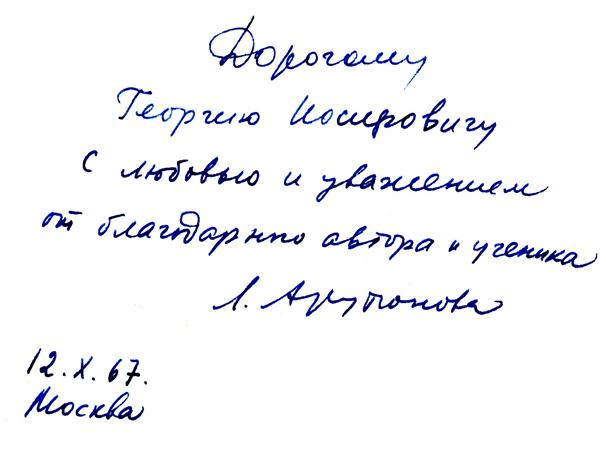 Дорогому
Георгию Иосифовичу
с любовью и уважением
от благодарного автора и ученика
Л. Арутюнова
12.X.67.
Москва